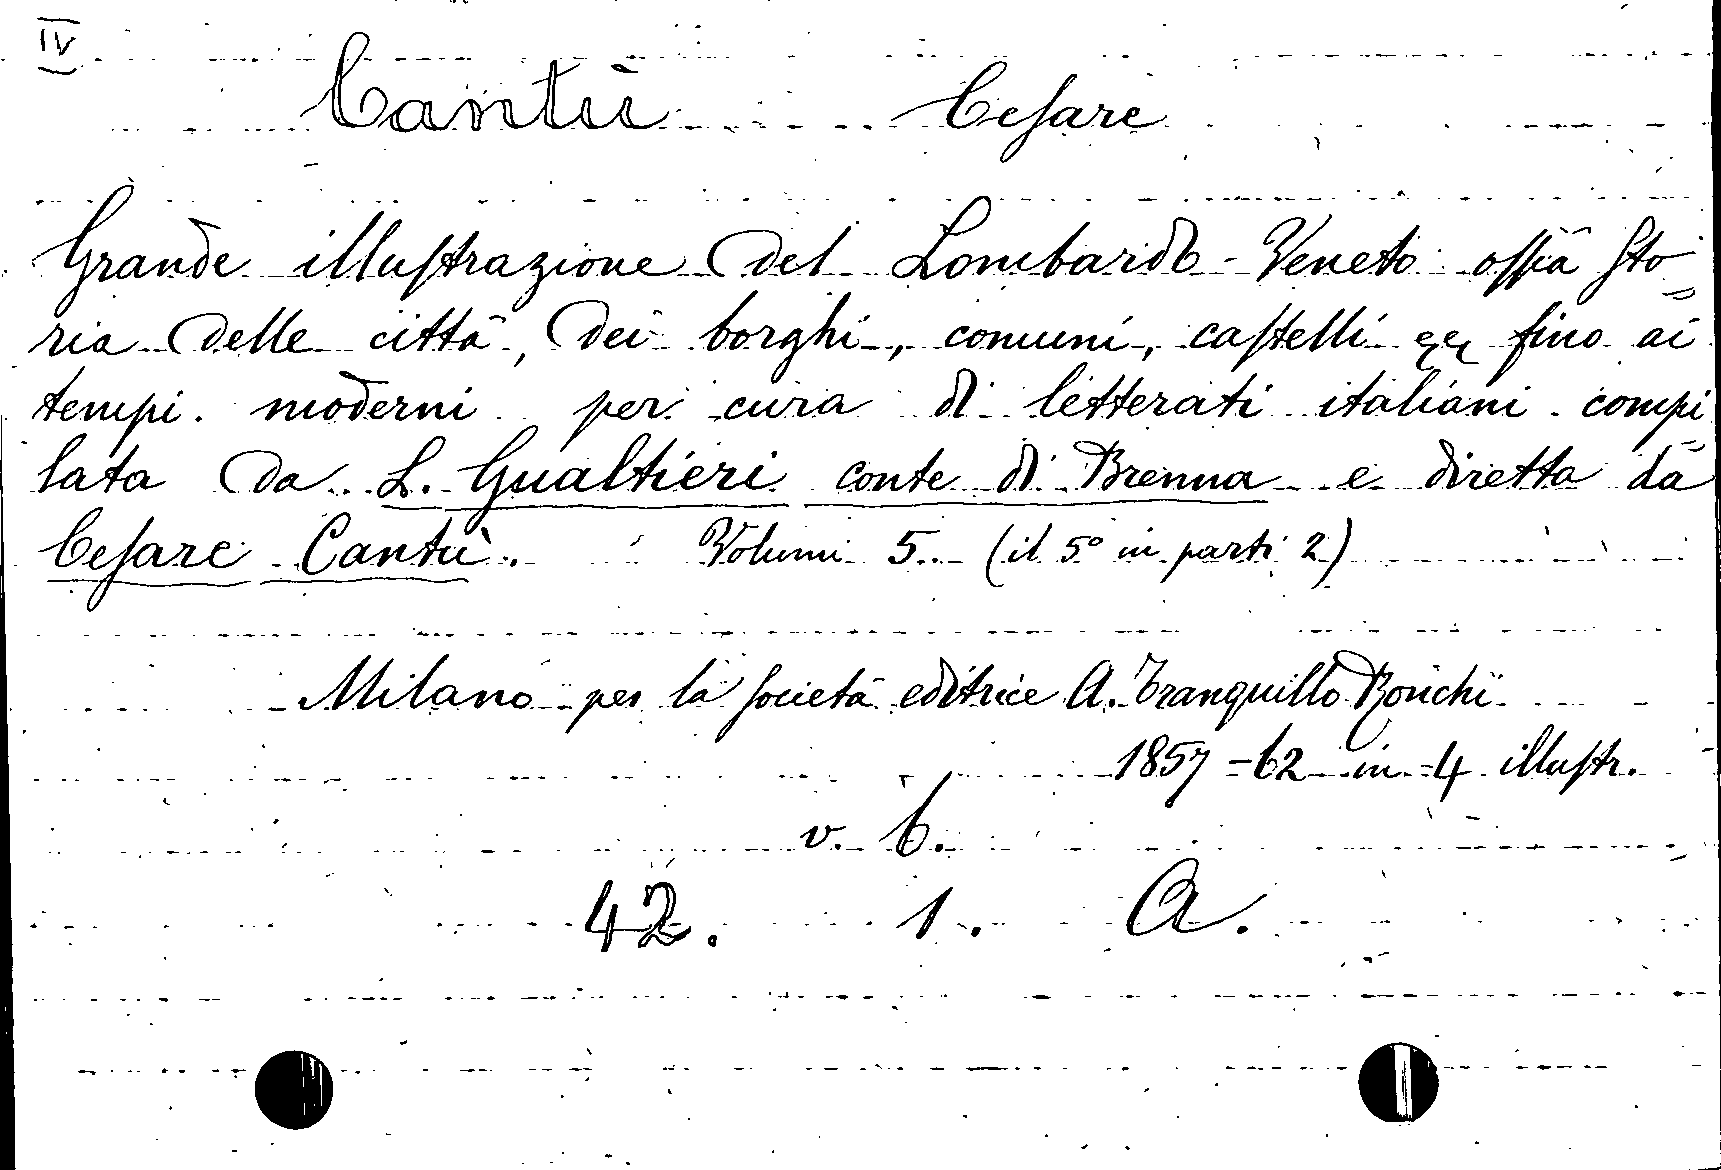 IV
Cantù Cesare
Grande illustrazione del Lombardo-Veneto ossia sto=
ria delle città, dei borghi, comuni, castelli ecc fino ai
tempi moderni per cura di letterati italiani compi=
lata da L. Gualtieri conte di Brenna e diretta da
Cesare Cantù. Volumi 5. (il 5º in parti 2)
Milano per la società editrice A. Tranquillo Ronchi
1857-62 in-4 illustr.
v. 6.
42. 1. A.